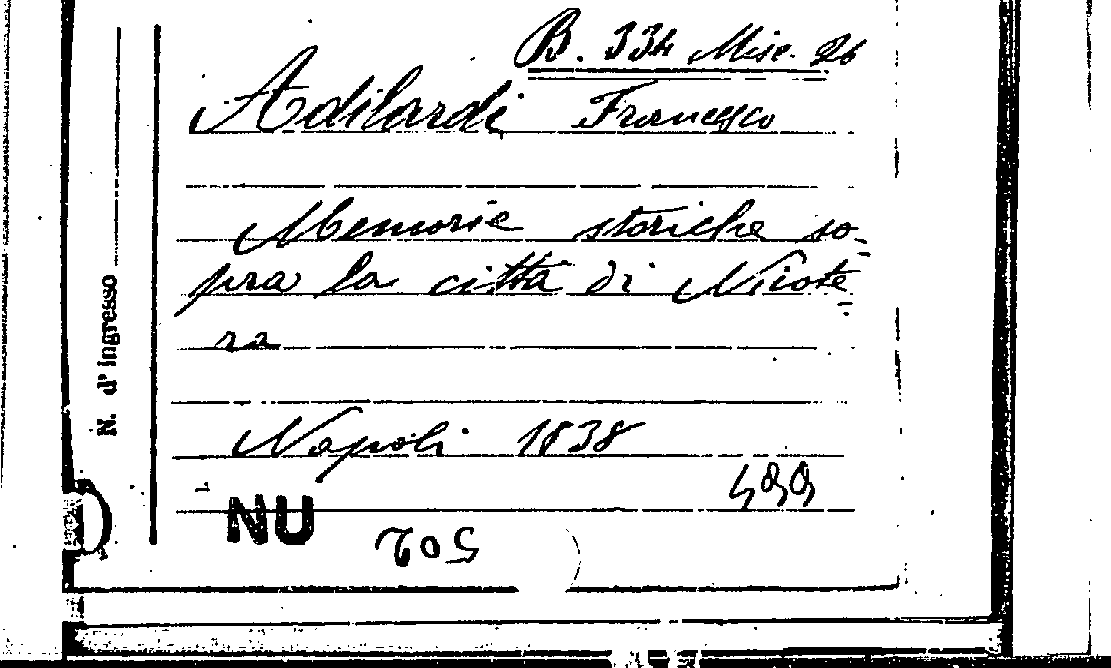 B. 334 Misc. 26
Adilardi Francesco
Memorie storiche so-
pra la città di Nicote-
ra
Napoli 1838
499
NU
502
N. d'ingresso